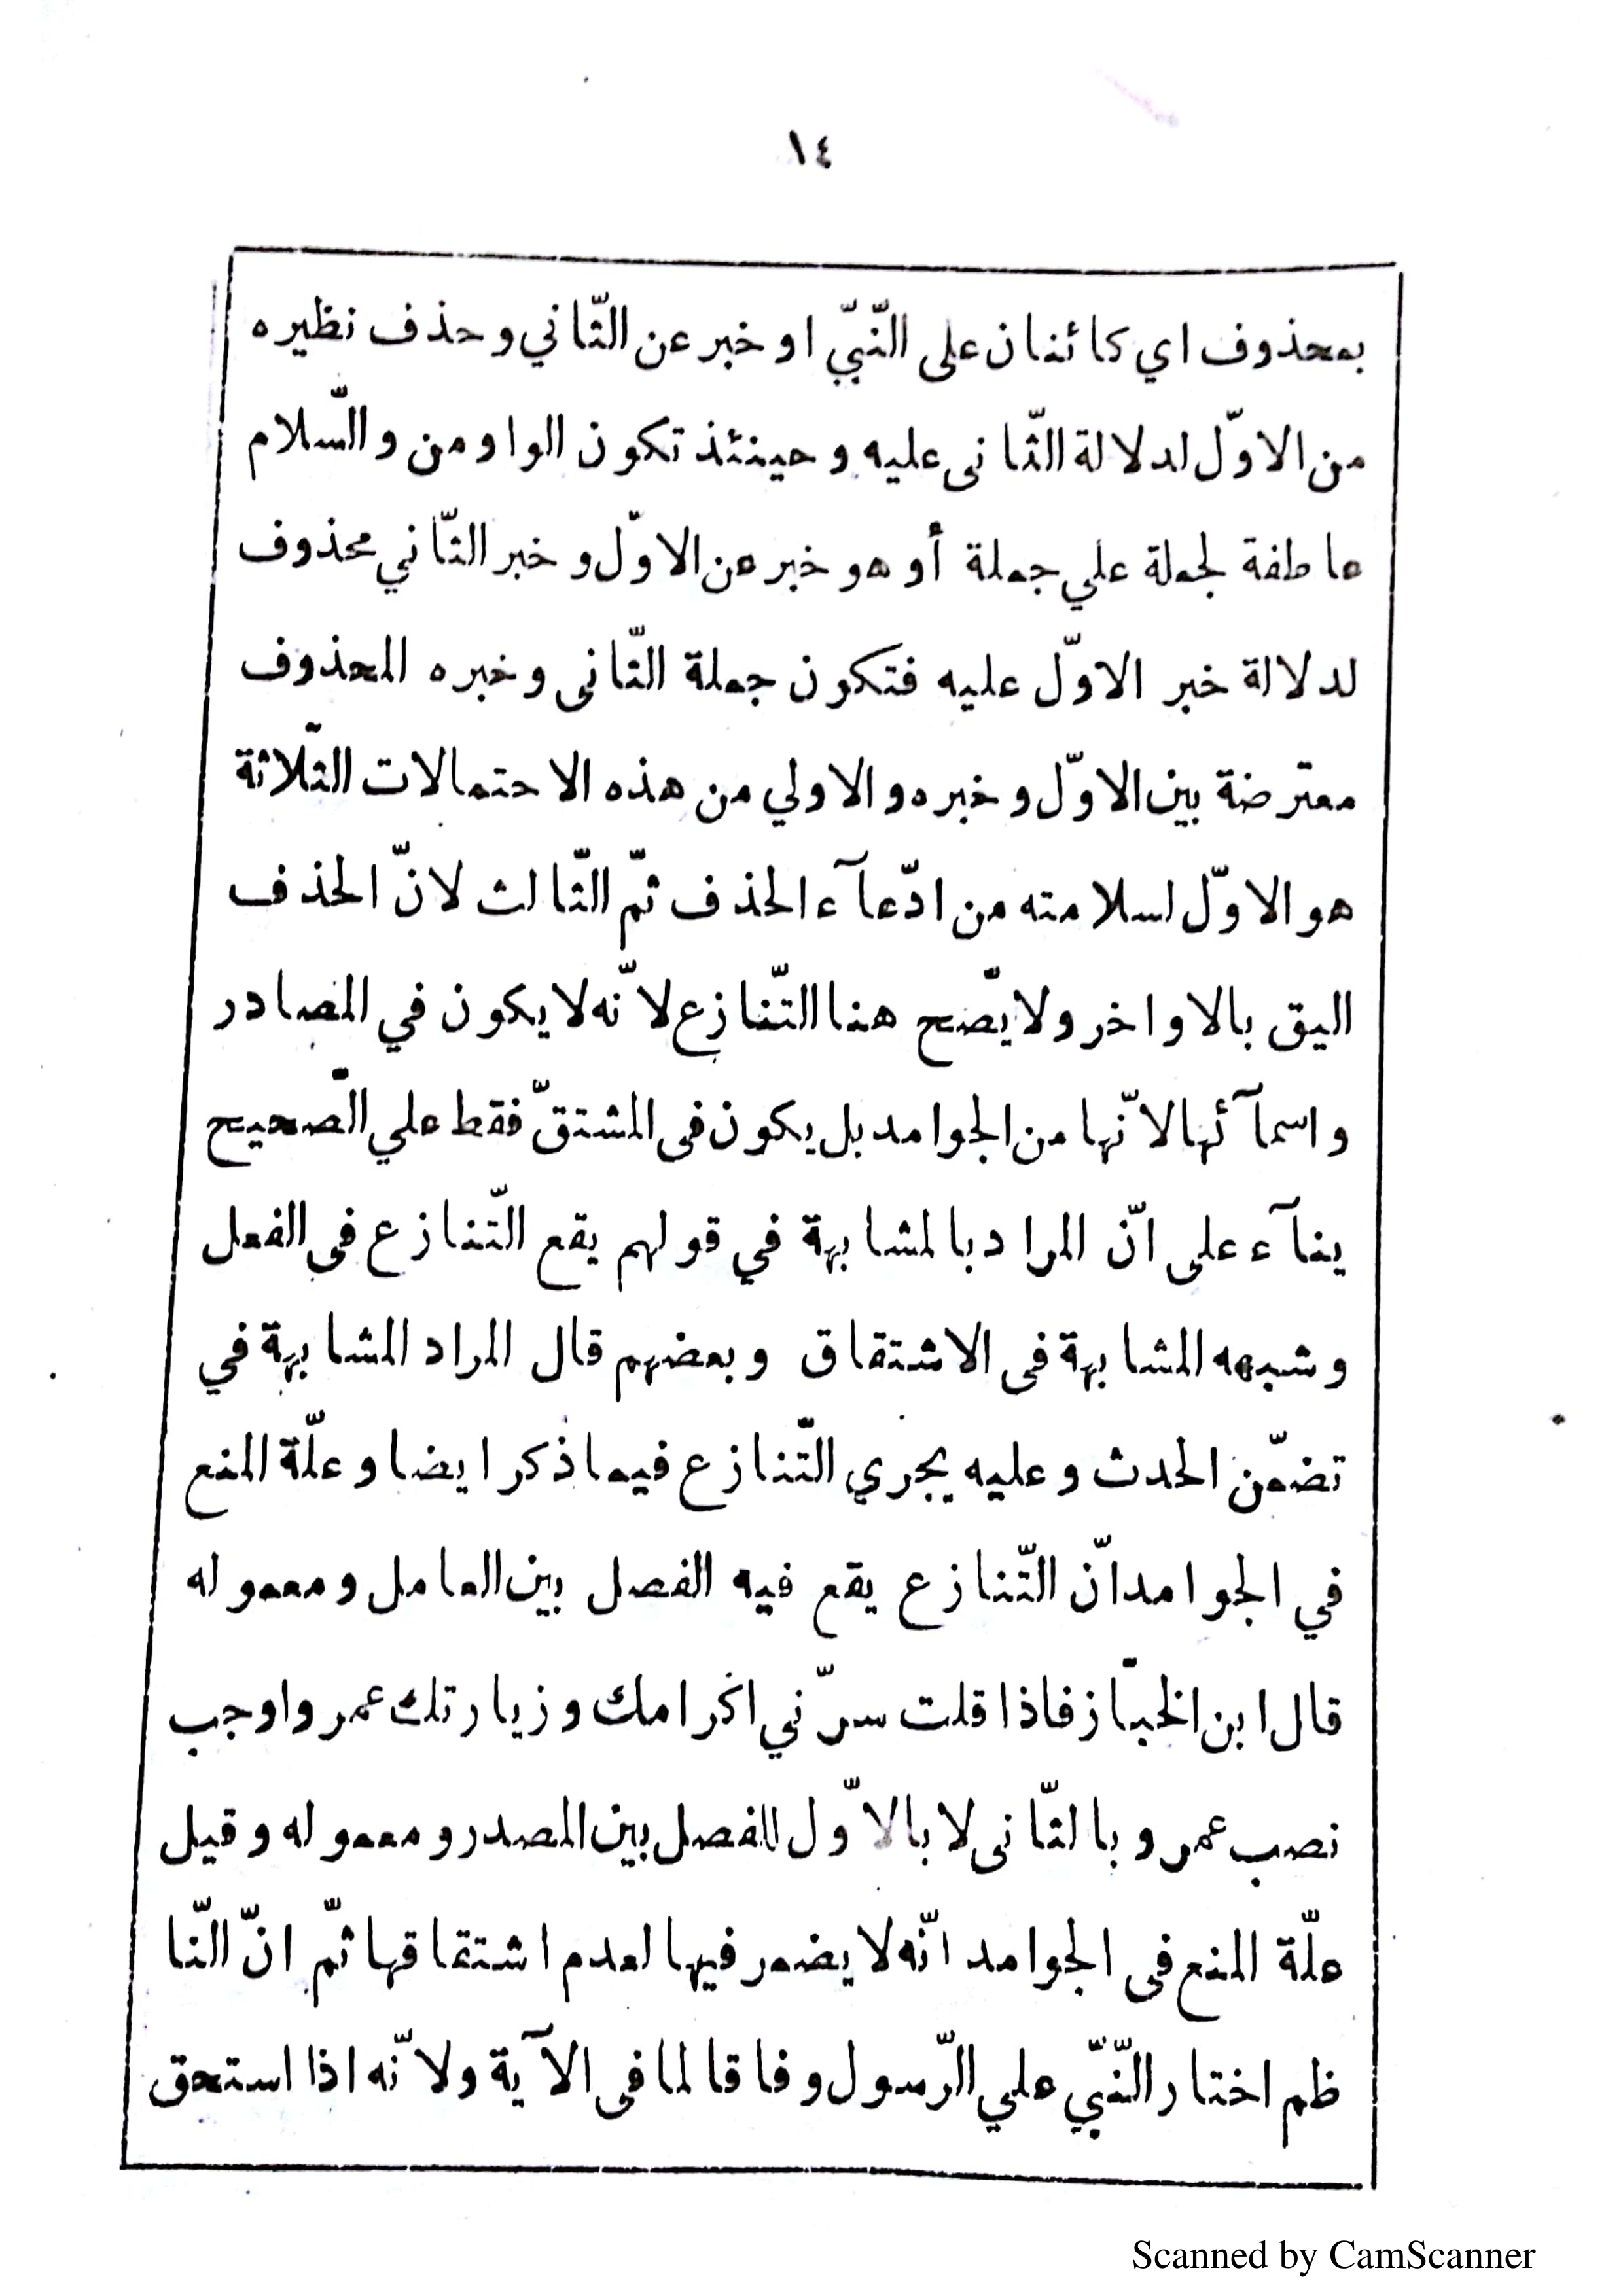 ١٤
بمحذوف اي كائنان على النّبيّ او خبر عن الثّاني وحذف نظيره
من الاوّل لدلالة الثّانى عليه وحينئذ تكون الواو من والسّلام
عاطفة لجملة علي جملة أو هو خبر عن الاوّل و خبر الثّاني محذوف
لدلالة خبر الاوّل عليه فتكون جملة الثّانى وخبره المحذوف
معترضة بين الاوّل وخبره والاولي من هذه الاحتمالات الثّلاثة
هو الاوّل لسلامته من ادّعآء الحذف ثمّ الثّالث لانّ الحذف
اليق بالاواخر ولا يصّح هنا التّنازع لانّه لا يكون في المصادر
واسمآئها لانّها من الجوامد بل يكون فى المشتقّ فقط علي الصّحيح
بنآء على انّ المراد بالمشابهة في قولهم يقع التّنازع فى الفعل
وشبهه المشابهة فى الاشتقاق وبعضهم قال المراد المشابهة في
تضمّن الحدث وعليه يجري التّنازع فيما ذكر ايضا وعلّة المنع
في الجوامد انّ التّنازع يقع فيه الفصل بين العامل ومعموله
قال ابن الخبّاز فاذا قلت سرّني اكرامك وزيارتك عمروا وجب
نصب عمرو بالثّانى لا بالاوّل للفصل بين المصدر ومعموله وقيل
علّة المنع فى الجوامد انّه لا يضمر فيها لعدم اشتقاقها ثمّ انّ النّا
ظم اختار النّبيّ علي الرّسول وفاقا لما فى الآية ولانّه اذا استحق
Scanned by CamScanner